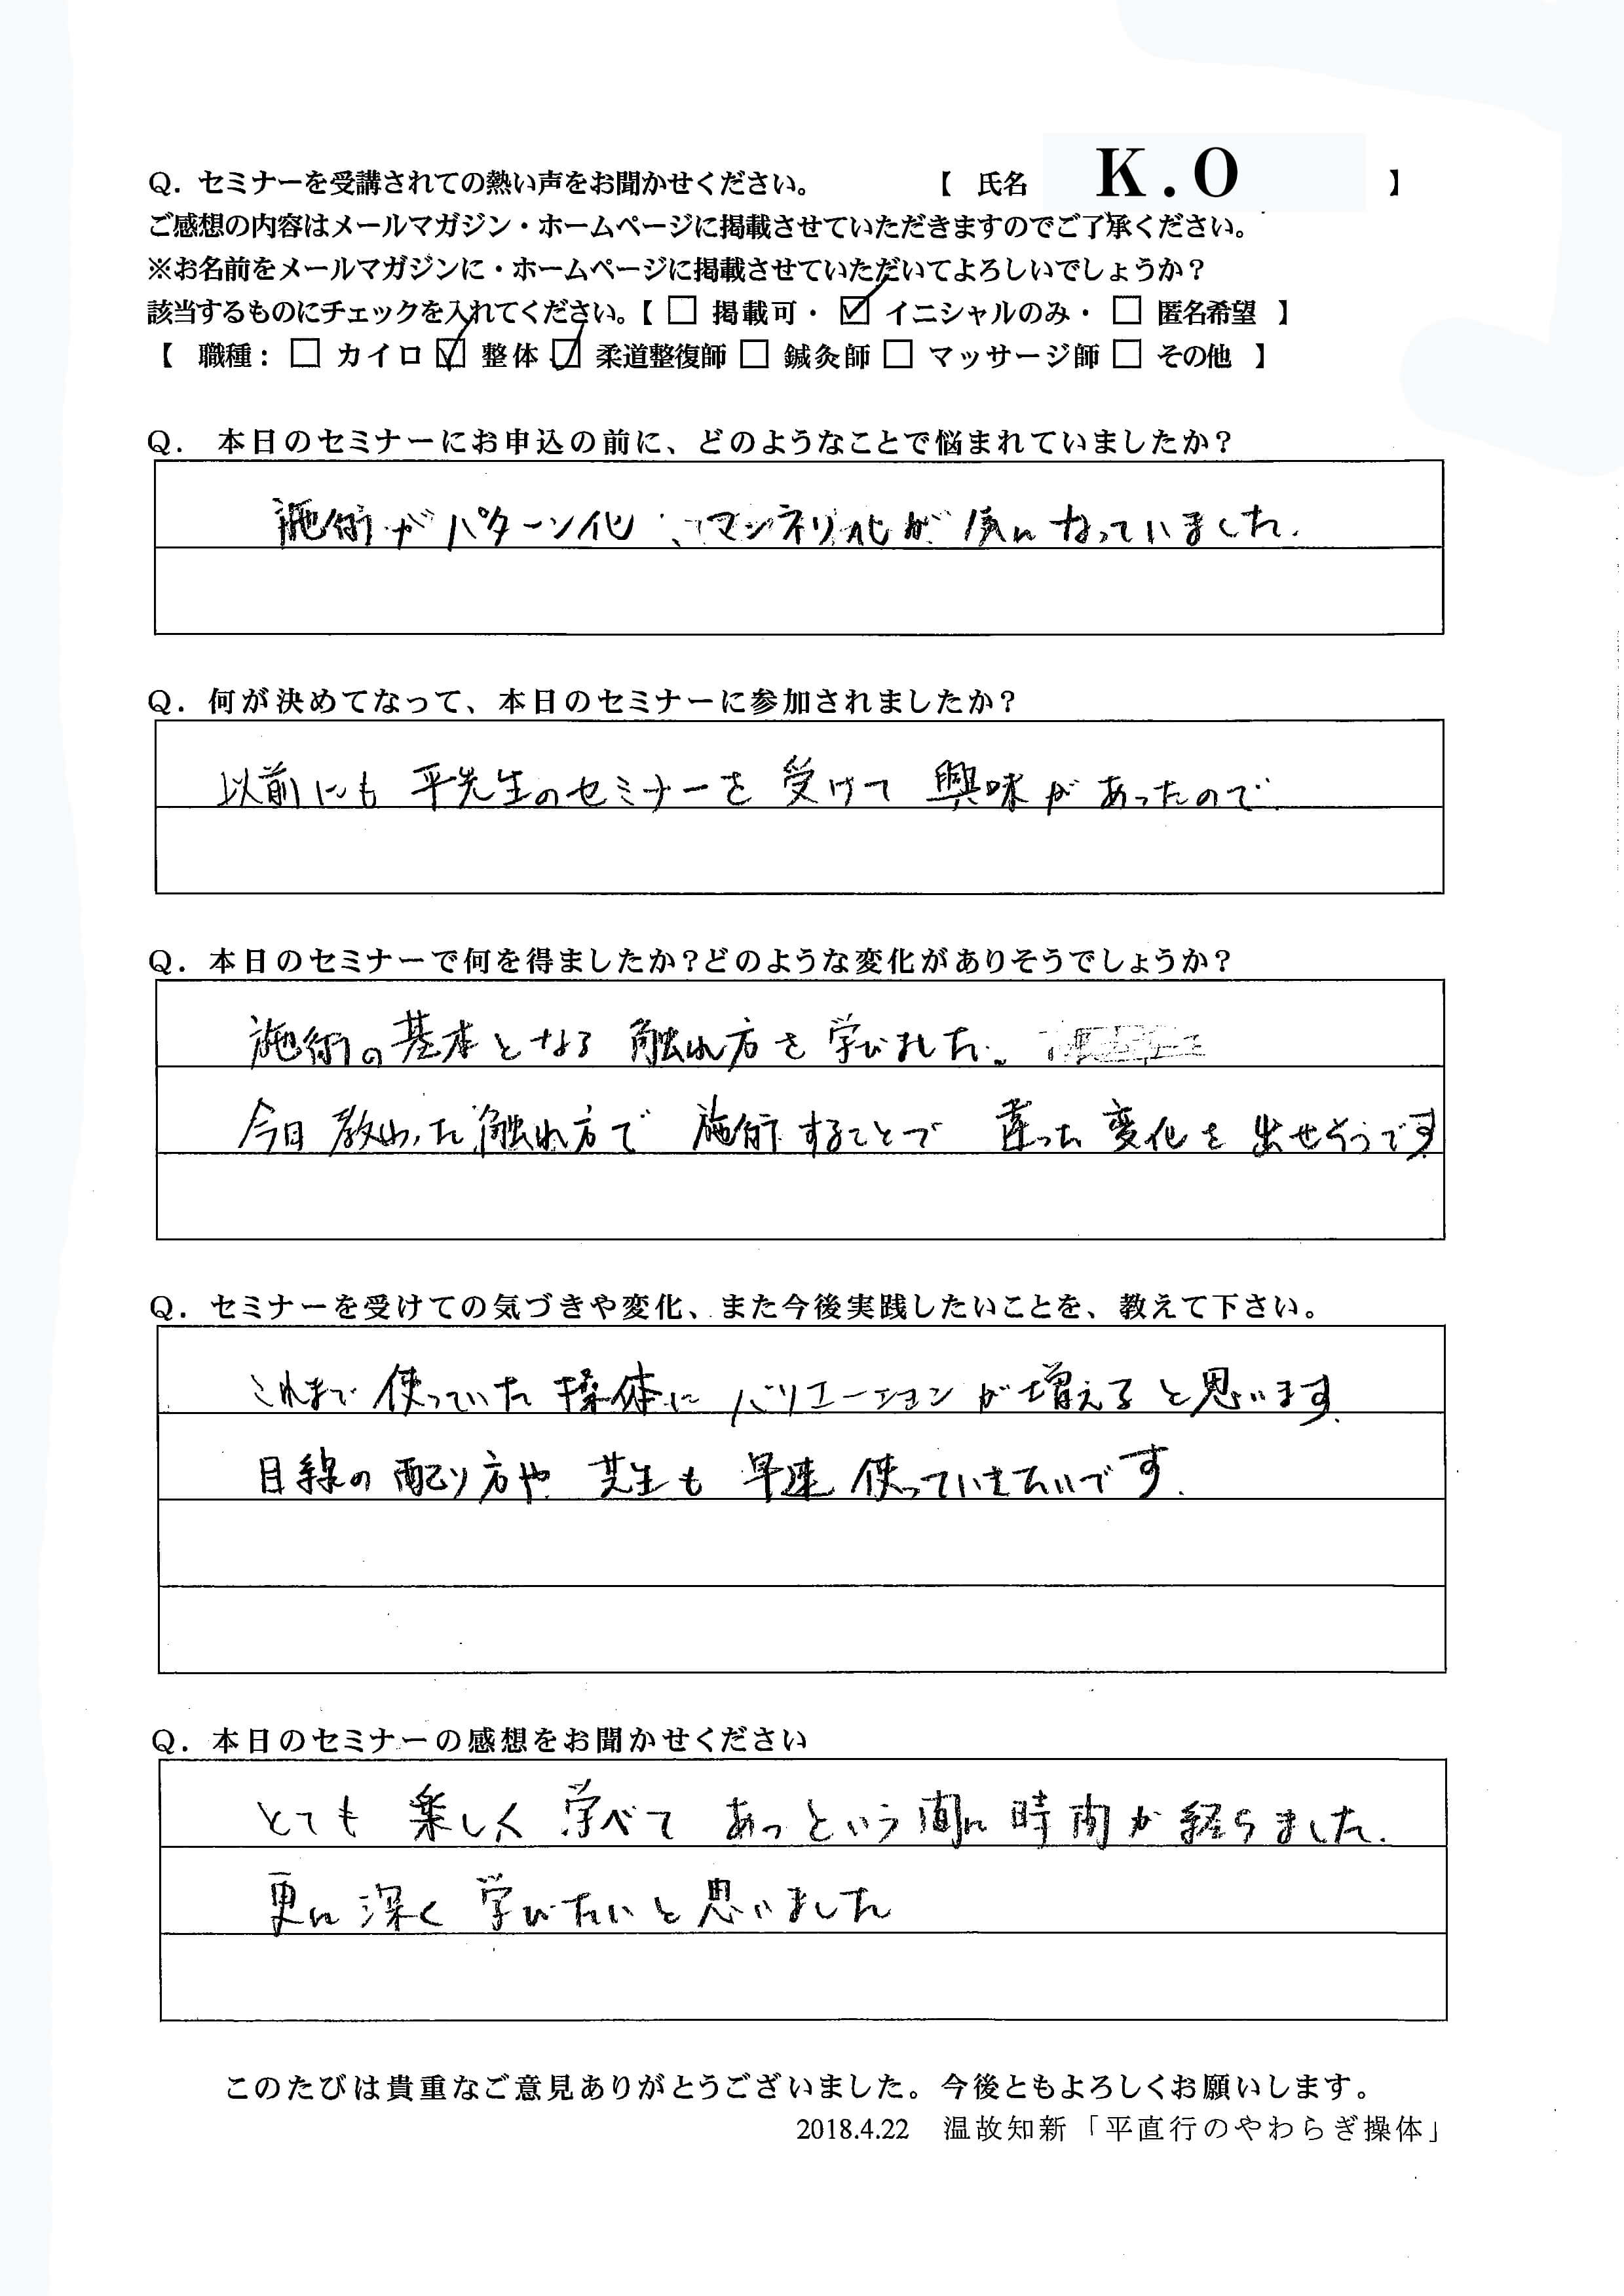 Q．セミナーを受講されての熱い声をお聞かせください。 【 氏名 K.O 】
ご感想の内容はメールマガジン・ホームページに掲載させていただきますのでご了承ください。
※お名前をメールマガジンに・ホームページに掲載させていただいてよろしいでしょうか？
該当するものにチェックを入れてください。【 □ 掲載可・ ☑ イニシャルのみ・ □ 匿名希望 】
【 職種： □ カイロ ☑ 整体 ☑ 柔道整復師 □ 鍼灸師 □ マッサージ師 □ その他 】
Q． 本日のセミナーにお申込の前に、どのようなことで悩まれていましたか？
施術がパターン化、マンネリ化が気になっていました.
Q．何が決めてなって、本日のセミナーに参加されましたか？
以前にも 平先生のセミナーを 受けて 興味があったので
Q．本日のセミナーで何を得ましたか？どのような変化がありそうでしょうか？
施術の基本となる 触れ方を学びました。
今日 教わった触れ方で 施術することで 違った変化を出せそうです
Q．セミナーを受けての気づきや変化、また今後実践したいことを、教えて下さい。
これまで使っていた操体にバリエーションが増えると思います.
目線の配り方や 芝生も 早速 使っていきたいです.
Q．本日のセミナーの感想をお聞かせください
とても 楽しく 学べて あっという間に 時間が経ちました.
更に深く 学びたいと思いました
このたびは貴重なご意見ありがとうございました。今後ともよろしくお願いします。
2018.4.22 温故知新「平直行のやわらぎ操体」